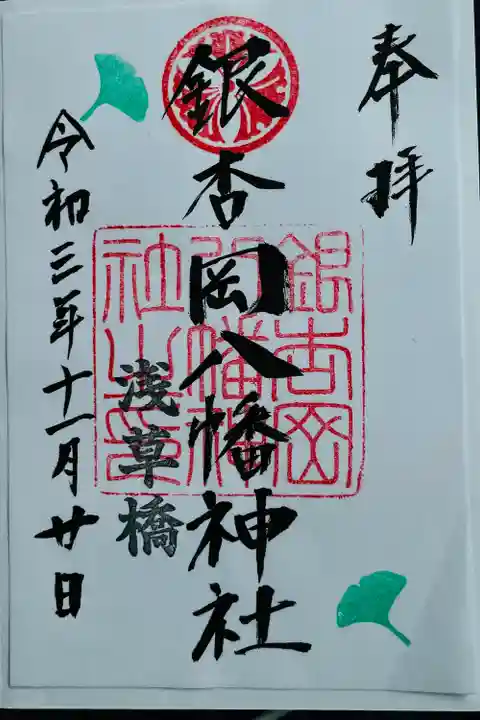 奉拝
銀杏岡八幡神社
銀杏岡
八幡神
社之印
浅草橋
令和三年十一月廿日